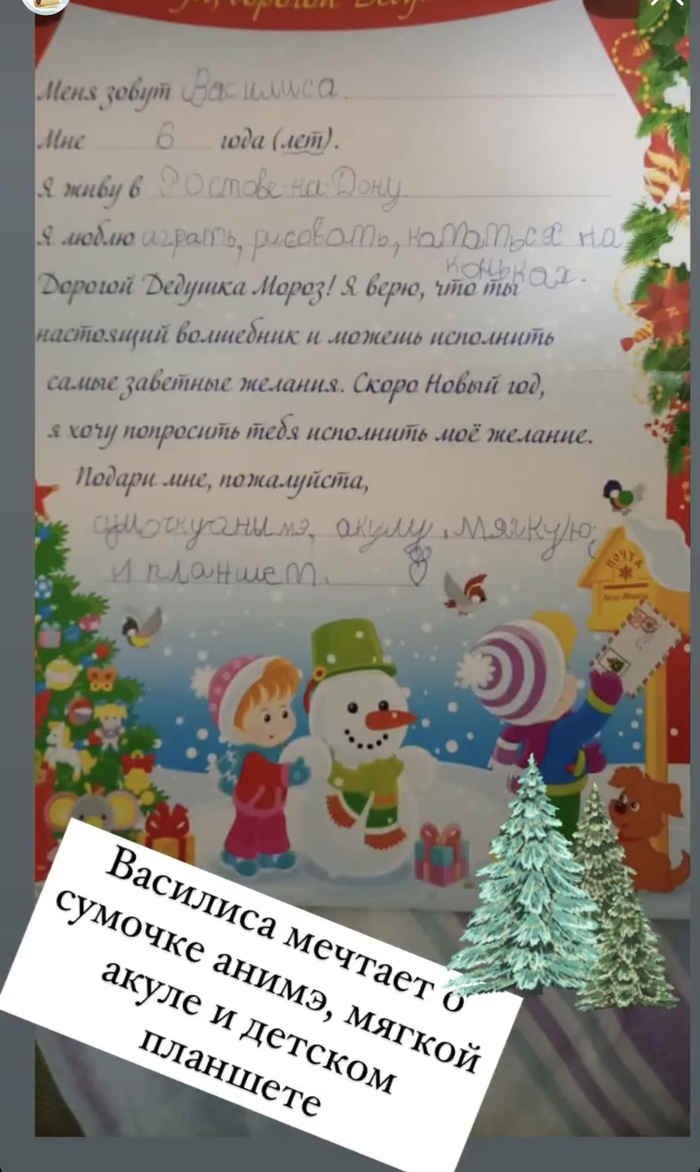 дорогой Деду
Меня зовут Василиса.
Мне 6 года (лет).
Я живу в Ростове-на-Дону
Я люблю играть, рисовать, кататься на
коньках.
Дорогой Дедушка Мороз! Я верю, что ты
настоящий волшебник и можешь исполнить
самые заветные желания. Скоро Новый год,
я хочу попросить тебя исполнить моё желание.
Подари мне, пожалуйста,
сумочку анимэ, акулу, мягкую,
и планшет.
ПОЧТА
Василиса мечтает о
сумочке анимэ, мягкой
акуле и детском
планшете